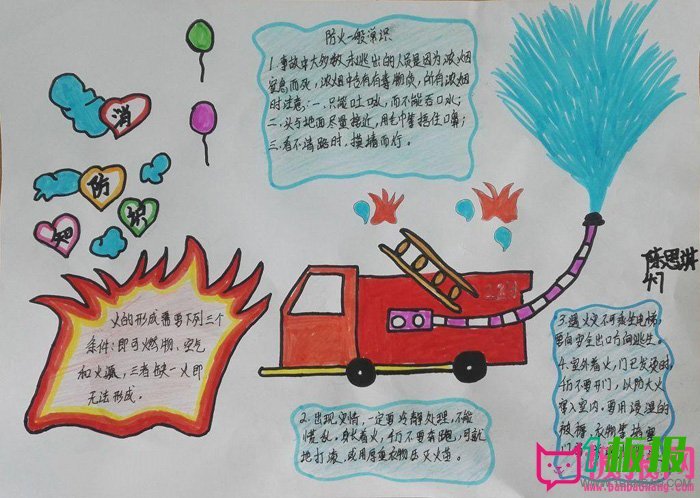 消
防
知
识
防火一般常识
1.事故中大多数未逃出的人员是因为浓烟
窒息而死,浓烟中含有有毒物质,所有浓烟
时注意:一、只能吐吸,而不能吞口水;
二、头与地面尽量接近,用毛巾等捂住口鼻;
三、看不清路时,摸墙而行。
火的形成需要下列三个
条件:即可燃物、空气
和火源,三者缺一火即
无法形成。
2.出现灾情,一定要冷静处理,不能
慌乱,身长着火,切不要奔跑,可就
地打滚,或用厚重衣物压灭火苗。
陈思琪
47
3.遇火灾不可乘坐电梯,
要向安全出口方向逃生。
4.室外着火,门已发烫时
切不要开门,以防大火
窜入室内,要用浸湿的
被褥、衣物等堵塞
板报网
www.banbaowang.com